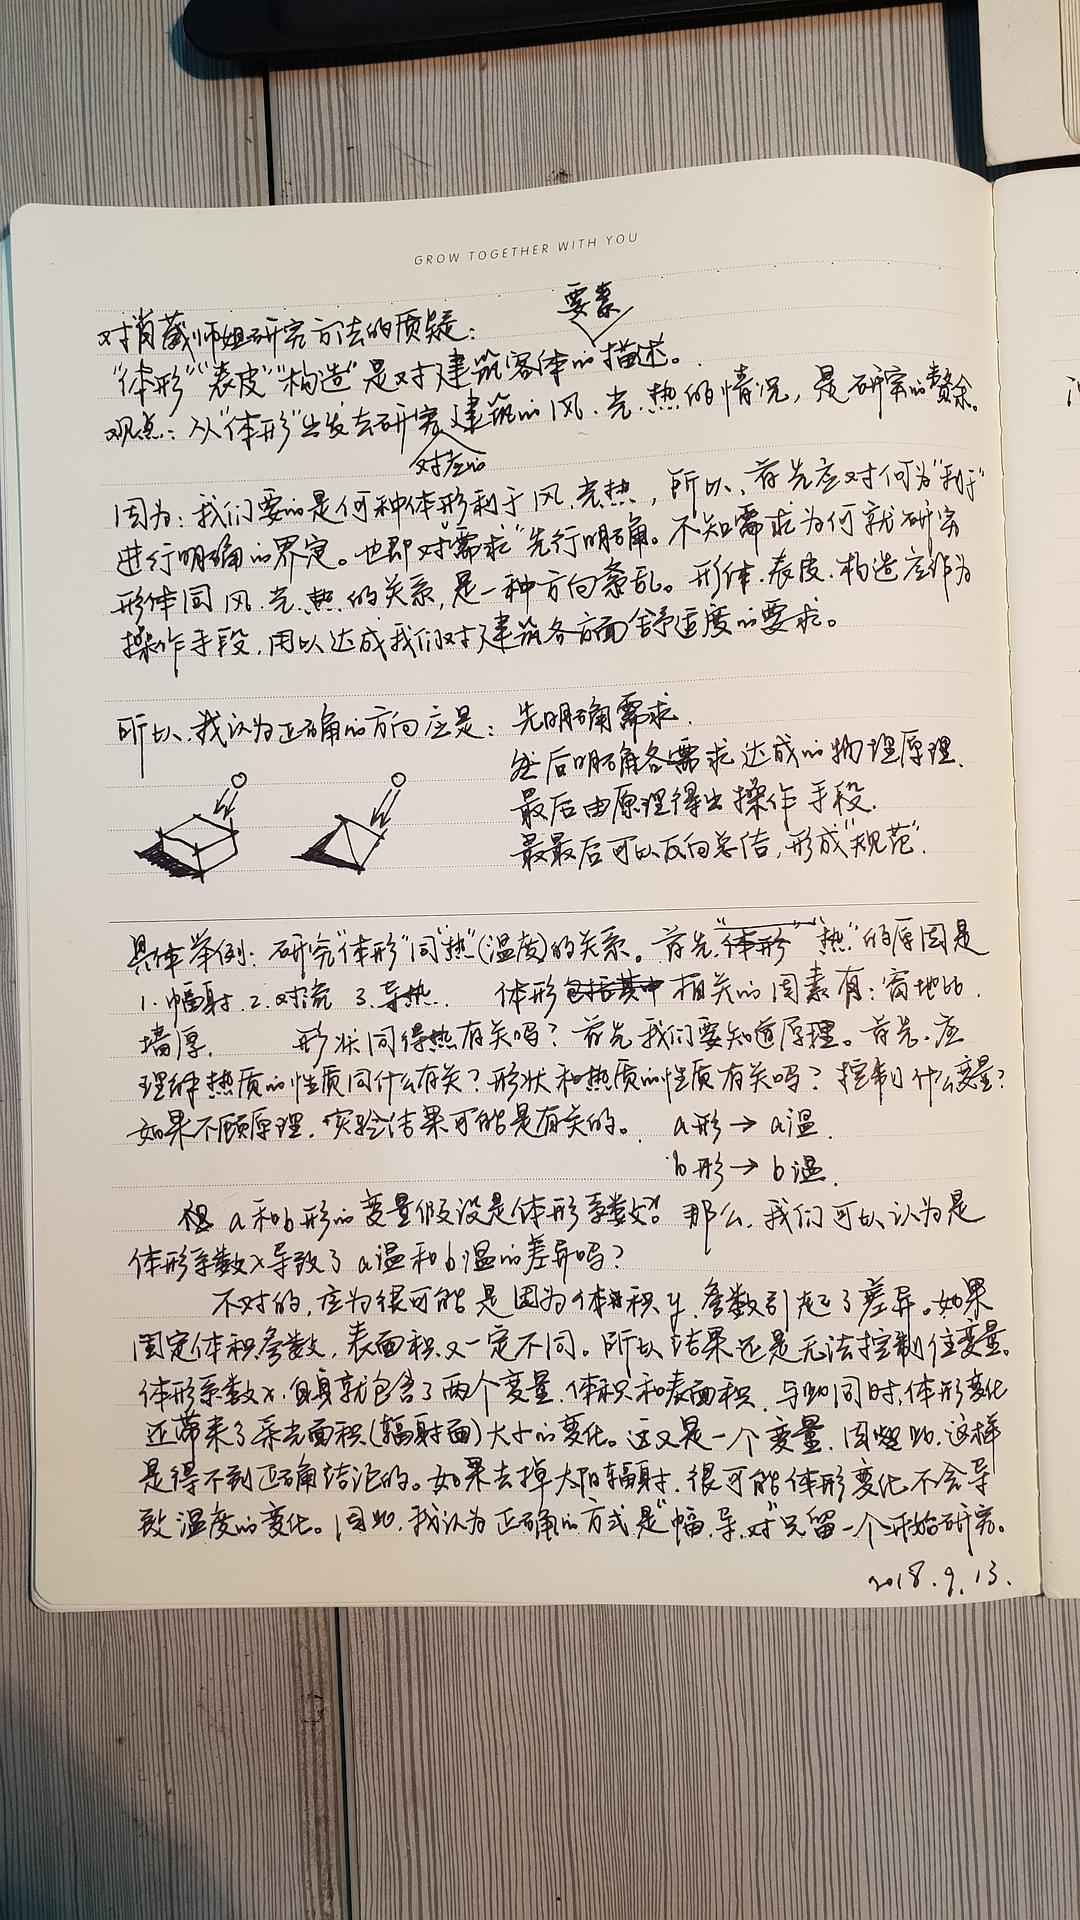 GROW TOGETHER WITH YOU
要素
对肖葳师姐研究方法的质疑：
“体形”“表皮”“构造”是对建筑客体的描述。
观点：从“体形”出发去研究建筑的风.光.热的情况，是研究的赘余。
对应的
因为：我们要的是何种体形利于风.光热，所以，首先应对何为“利于”
进行明确的界定。也即对“需求”先行明确。不知需求为何就研究
形体同风.光.热.的关系，是一种方向紊乱。形体.表皮.构造应作为
操作手段，用以达成我们对建筑各方面舒适度的要求。
所以，我认为正确的方向应是：先明确需求.
然后明确各需求达成的物理原理.
最后由原理得出操作手段.
最最后可以反向总结，形成“规范”.
具体举例：研究“体形”同“热”(温度)的关系。首先.“体形”“热”的原因是
1.幅射.2.对流 3.导热. 体形包括其中相关的因素有：窗地比.
墙厚. 形状同得热有关吗？首先我们要知道原理。首先.应
理解热质的性质同什么有关？形状和热质的性质有关吗？控制什么变量？
如果不顾原理.实验结果可能是有关的。 a形→a温.
b形→b温.
a和b形的变量假设是体形系数x? 那么，我们可以认为是
体形系数x导致了a温和b温的差异吗？
不对的，应为很可能是因为体积y.参数引起了差异。如果
固定体积参数，表面积又一定不同。所以结果还是无法控制住变量。
体形系数x.自身就包含了两个变量.体积和表面积.与此同时，体形变化
还带来了采光面积(辐射面)大小的变化。这又是一个变量.因此.这样
是得不到正确结论的。如果去掉太阳辐射.很可能体形变化不会导
致温度的变化。因此.我认为正确的方式是“幅.导.对”只留一个开始研究。
2018.9.13.